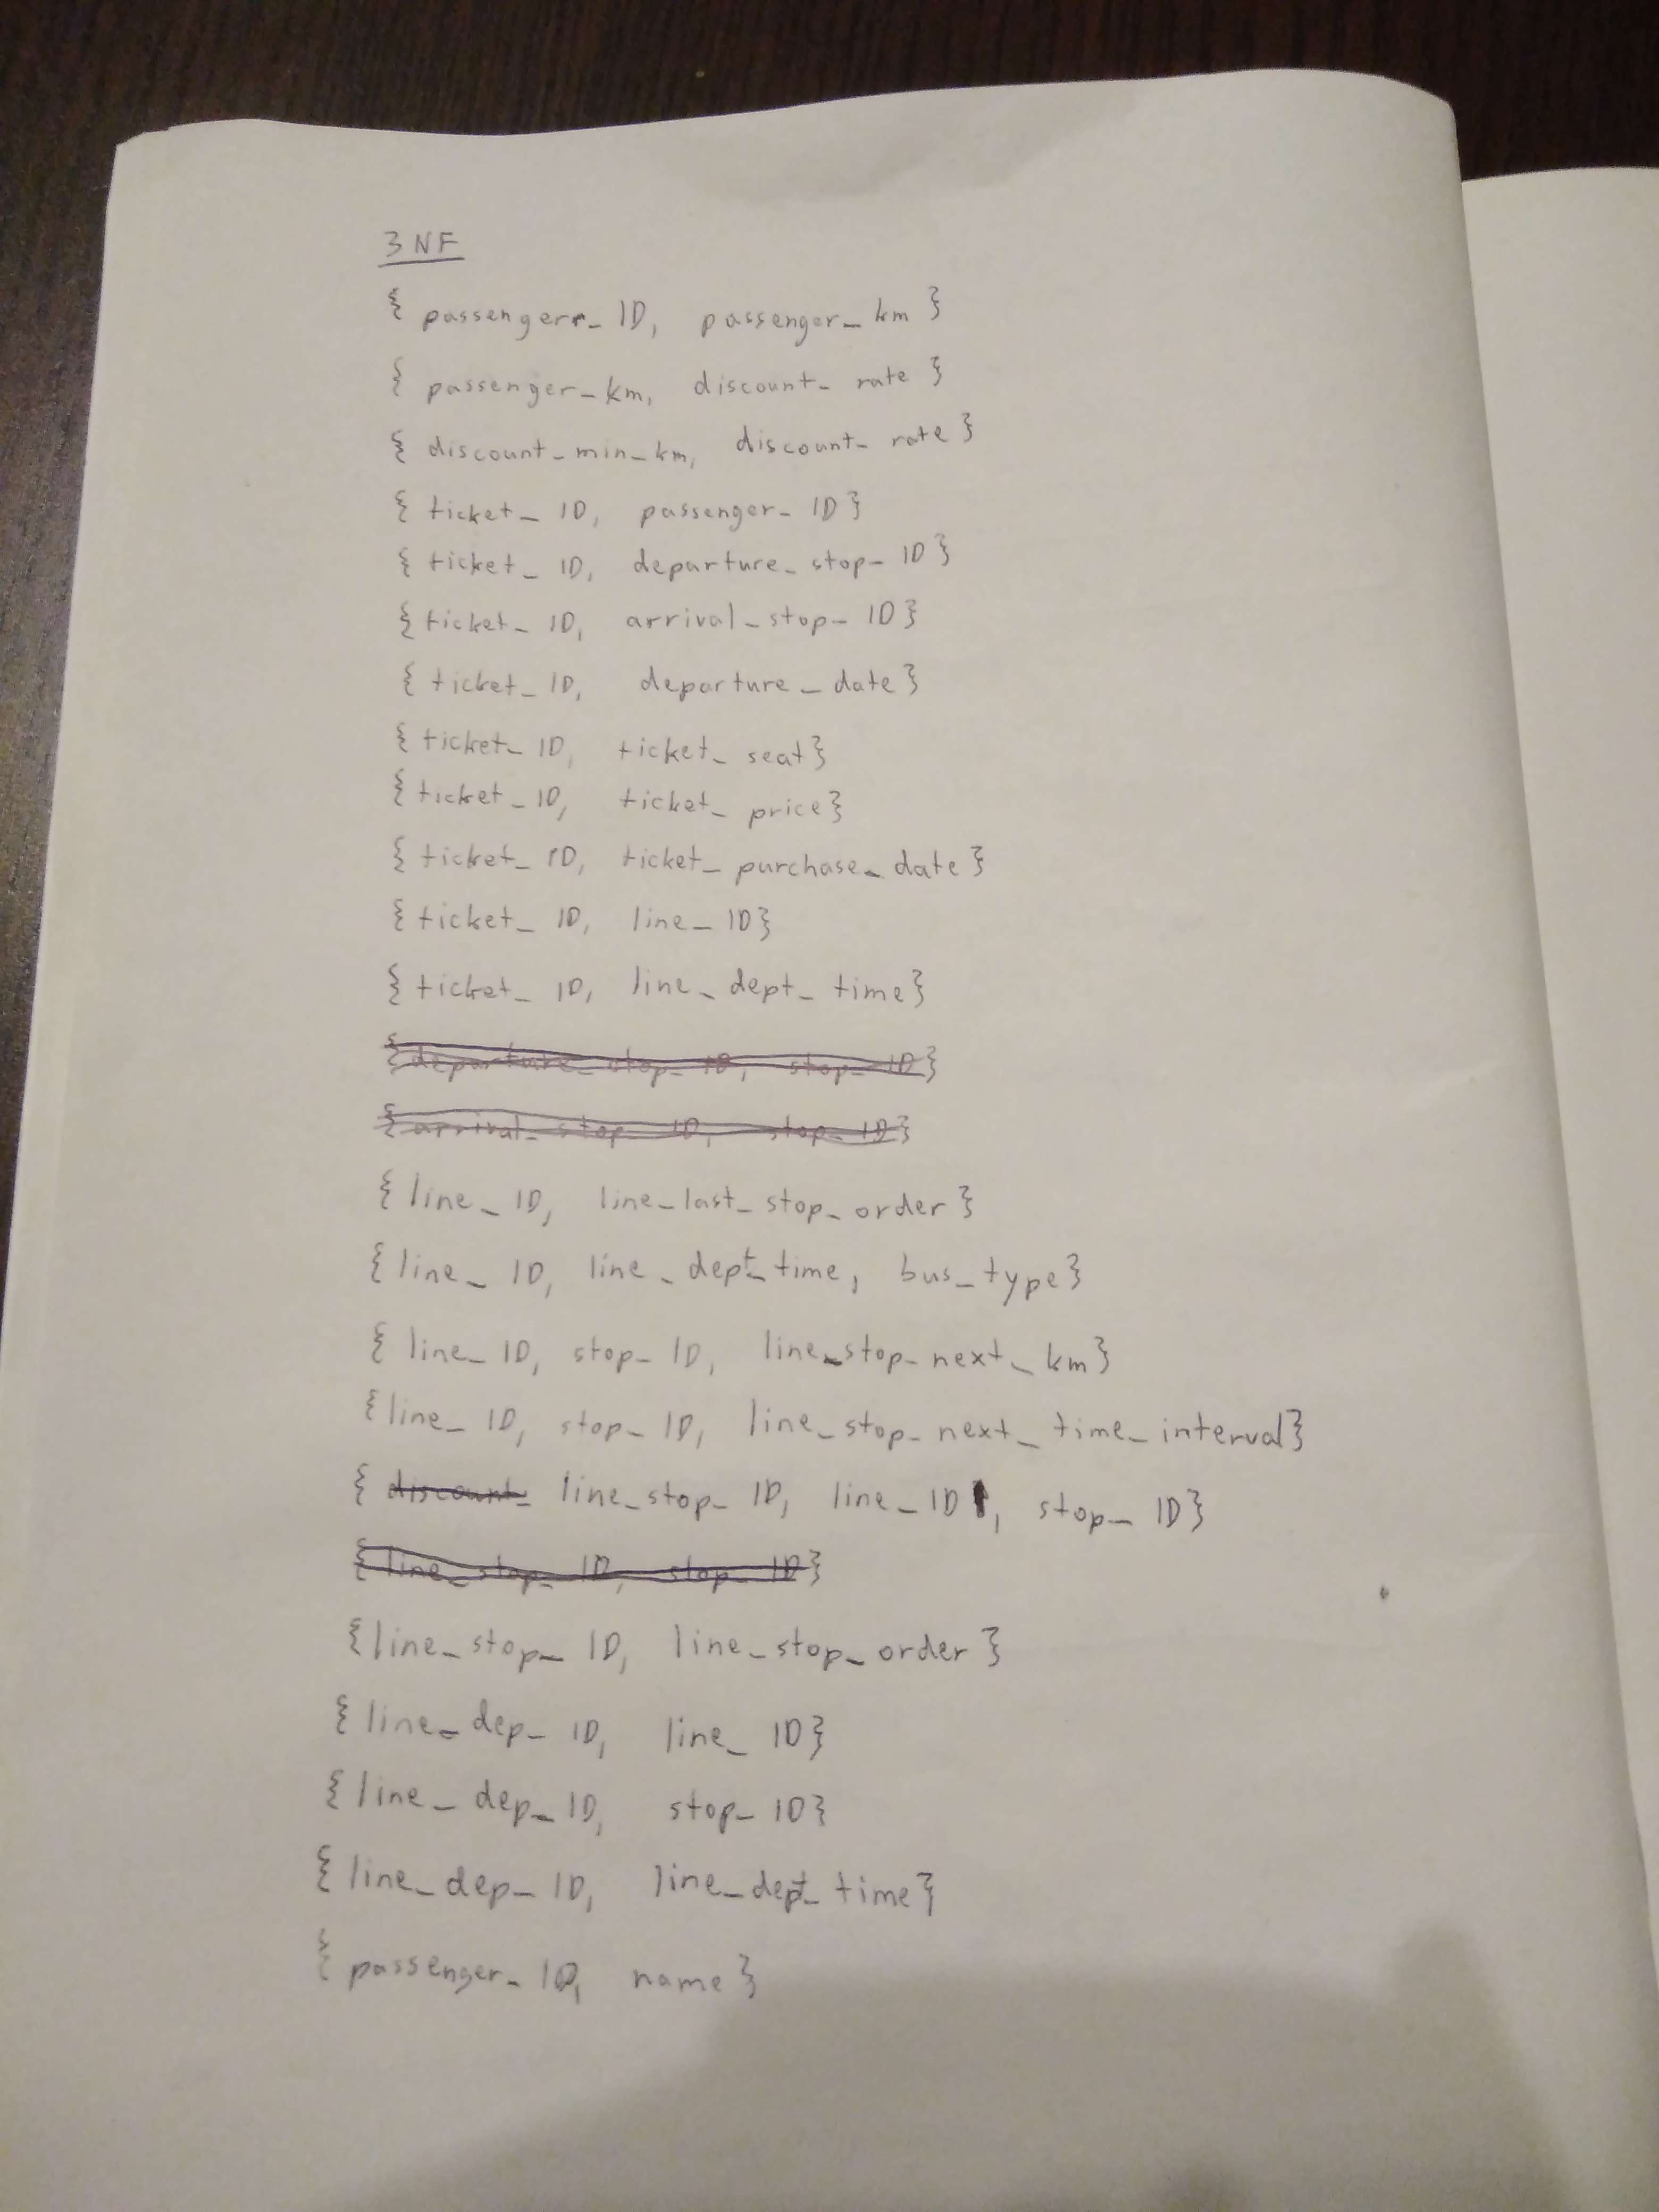 3NF
{ passengerr_ID, passenger_km }
{ passenger_km, discount_rate }
{ discount_min_km, discount_rate }
{ ticket_ID, passenger_ID }
{ ticket_ID, departure_stop_ID }
{ ticket_ID, arrival_stop_ID }
{ ticket_ID, departure_date }
{ ticket_ID, ticket_seat }
{ ticket_ID, ticket_price }
{ ticket_ID, ticket_purchase_date }
{ ticket_ID, line_ID }
{ ticket_ID, line_dept_time }
{ departure_stop_ID, stop_ID }
{ arrival_stop_ID, stop_ID }
{ line_ID, line_last_stop_order }
{ line_ID, line_dept_time, bus_type }
{ line_ID, stop_ID, line_stop_next_km }
{ line_ID, stop_ID, line_stop_next_time_interval }
{ discount_ line_stop_ID, line_ID, stop_ID }
{ line_stop_ID, stop_ID }
{ line_stop_ID, line_stop_order }
{ line_dep_ID, line_ID }
{ line_dep_ID, stop_ID }
{ line_dep_ID, line_dept_time }
{ passenger_ID, name }